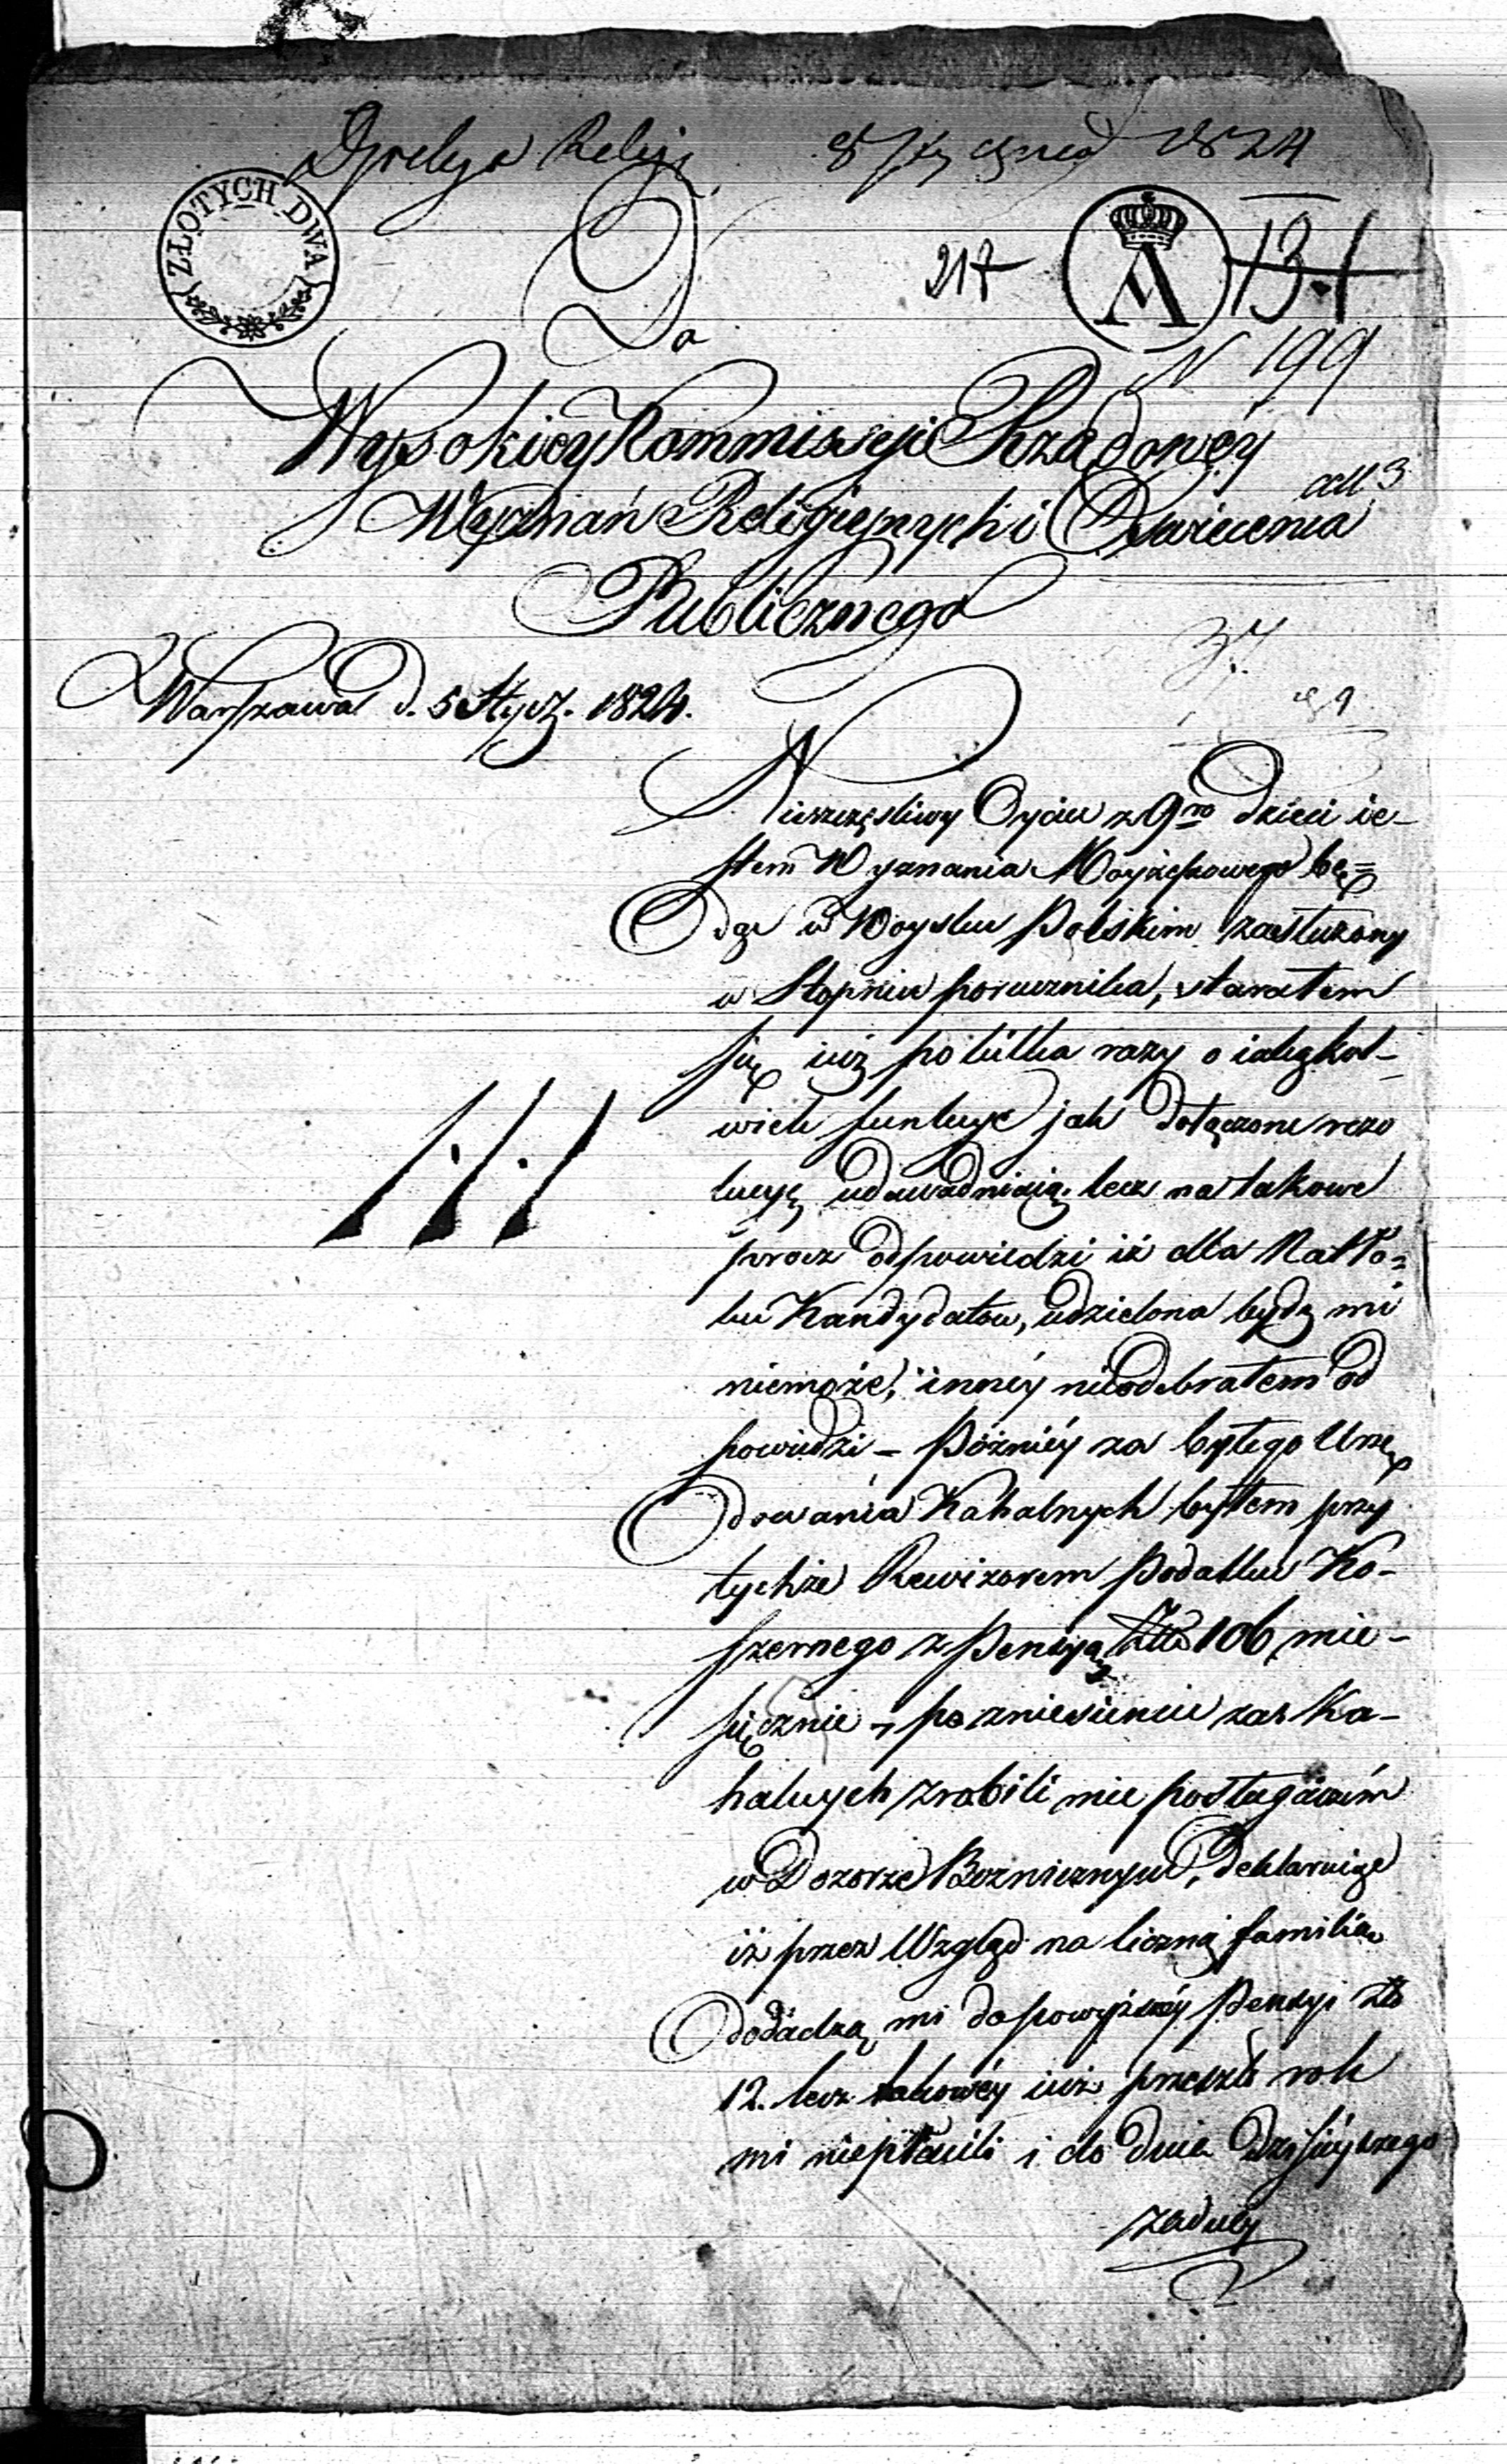 ZŁOTYCH DWA
1824
Do
217
A
13.1
N 199
Wysokiey Kommissyi Rządowéy
Wyznań Religiynych i Oświecenia
Publicznego
Warszawa d. 5 Stycz. 1824.
Nieszczęsliwy Oyciec z 9ro dzieci ie-
stem Wyznania Moyżeszowego bę=
dąc w Woysku Polskim zasłużony
w Stopniu porucznika, starałem
się iuż po kilka razy o iakążkol-
wiek funkcye jak dołączone rezo
lucye udowadniaią. lecz na takowe
procz odpowiedzi iż dla Natło=
ku Kandydatow, udzielona bydź mi
niemoże, innéy nieodebrałem od
powiedzi - Pózniéy za byłego Urzę
dowania Kahalnych byłem przy
tychże Rewizorem Podatku Ko-
szernego z Pensyą Złł 106 mie-
sięcznie, po zniesieniu zaś Ka-
halnych zrobili mie posługaczem
w Dozorze Boznicznym, deklaruiąc
iż przez Wzgląd na liczną familią
dodadzą mi do powyższéy Pensyi zł
12. lecz takowéy iuż przeszło rok
mi niepłacili i do dnia dzisieyszego
żadnéy